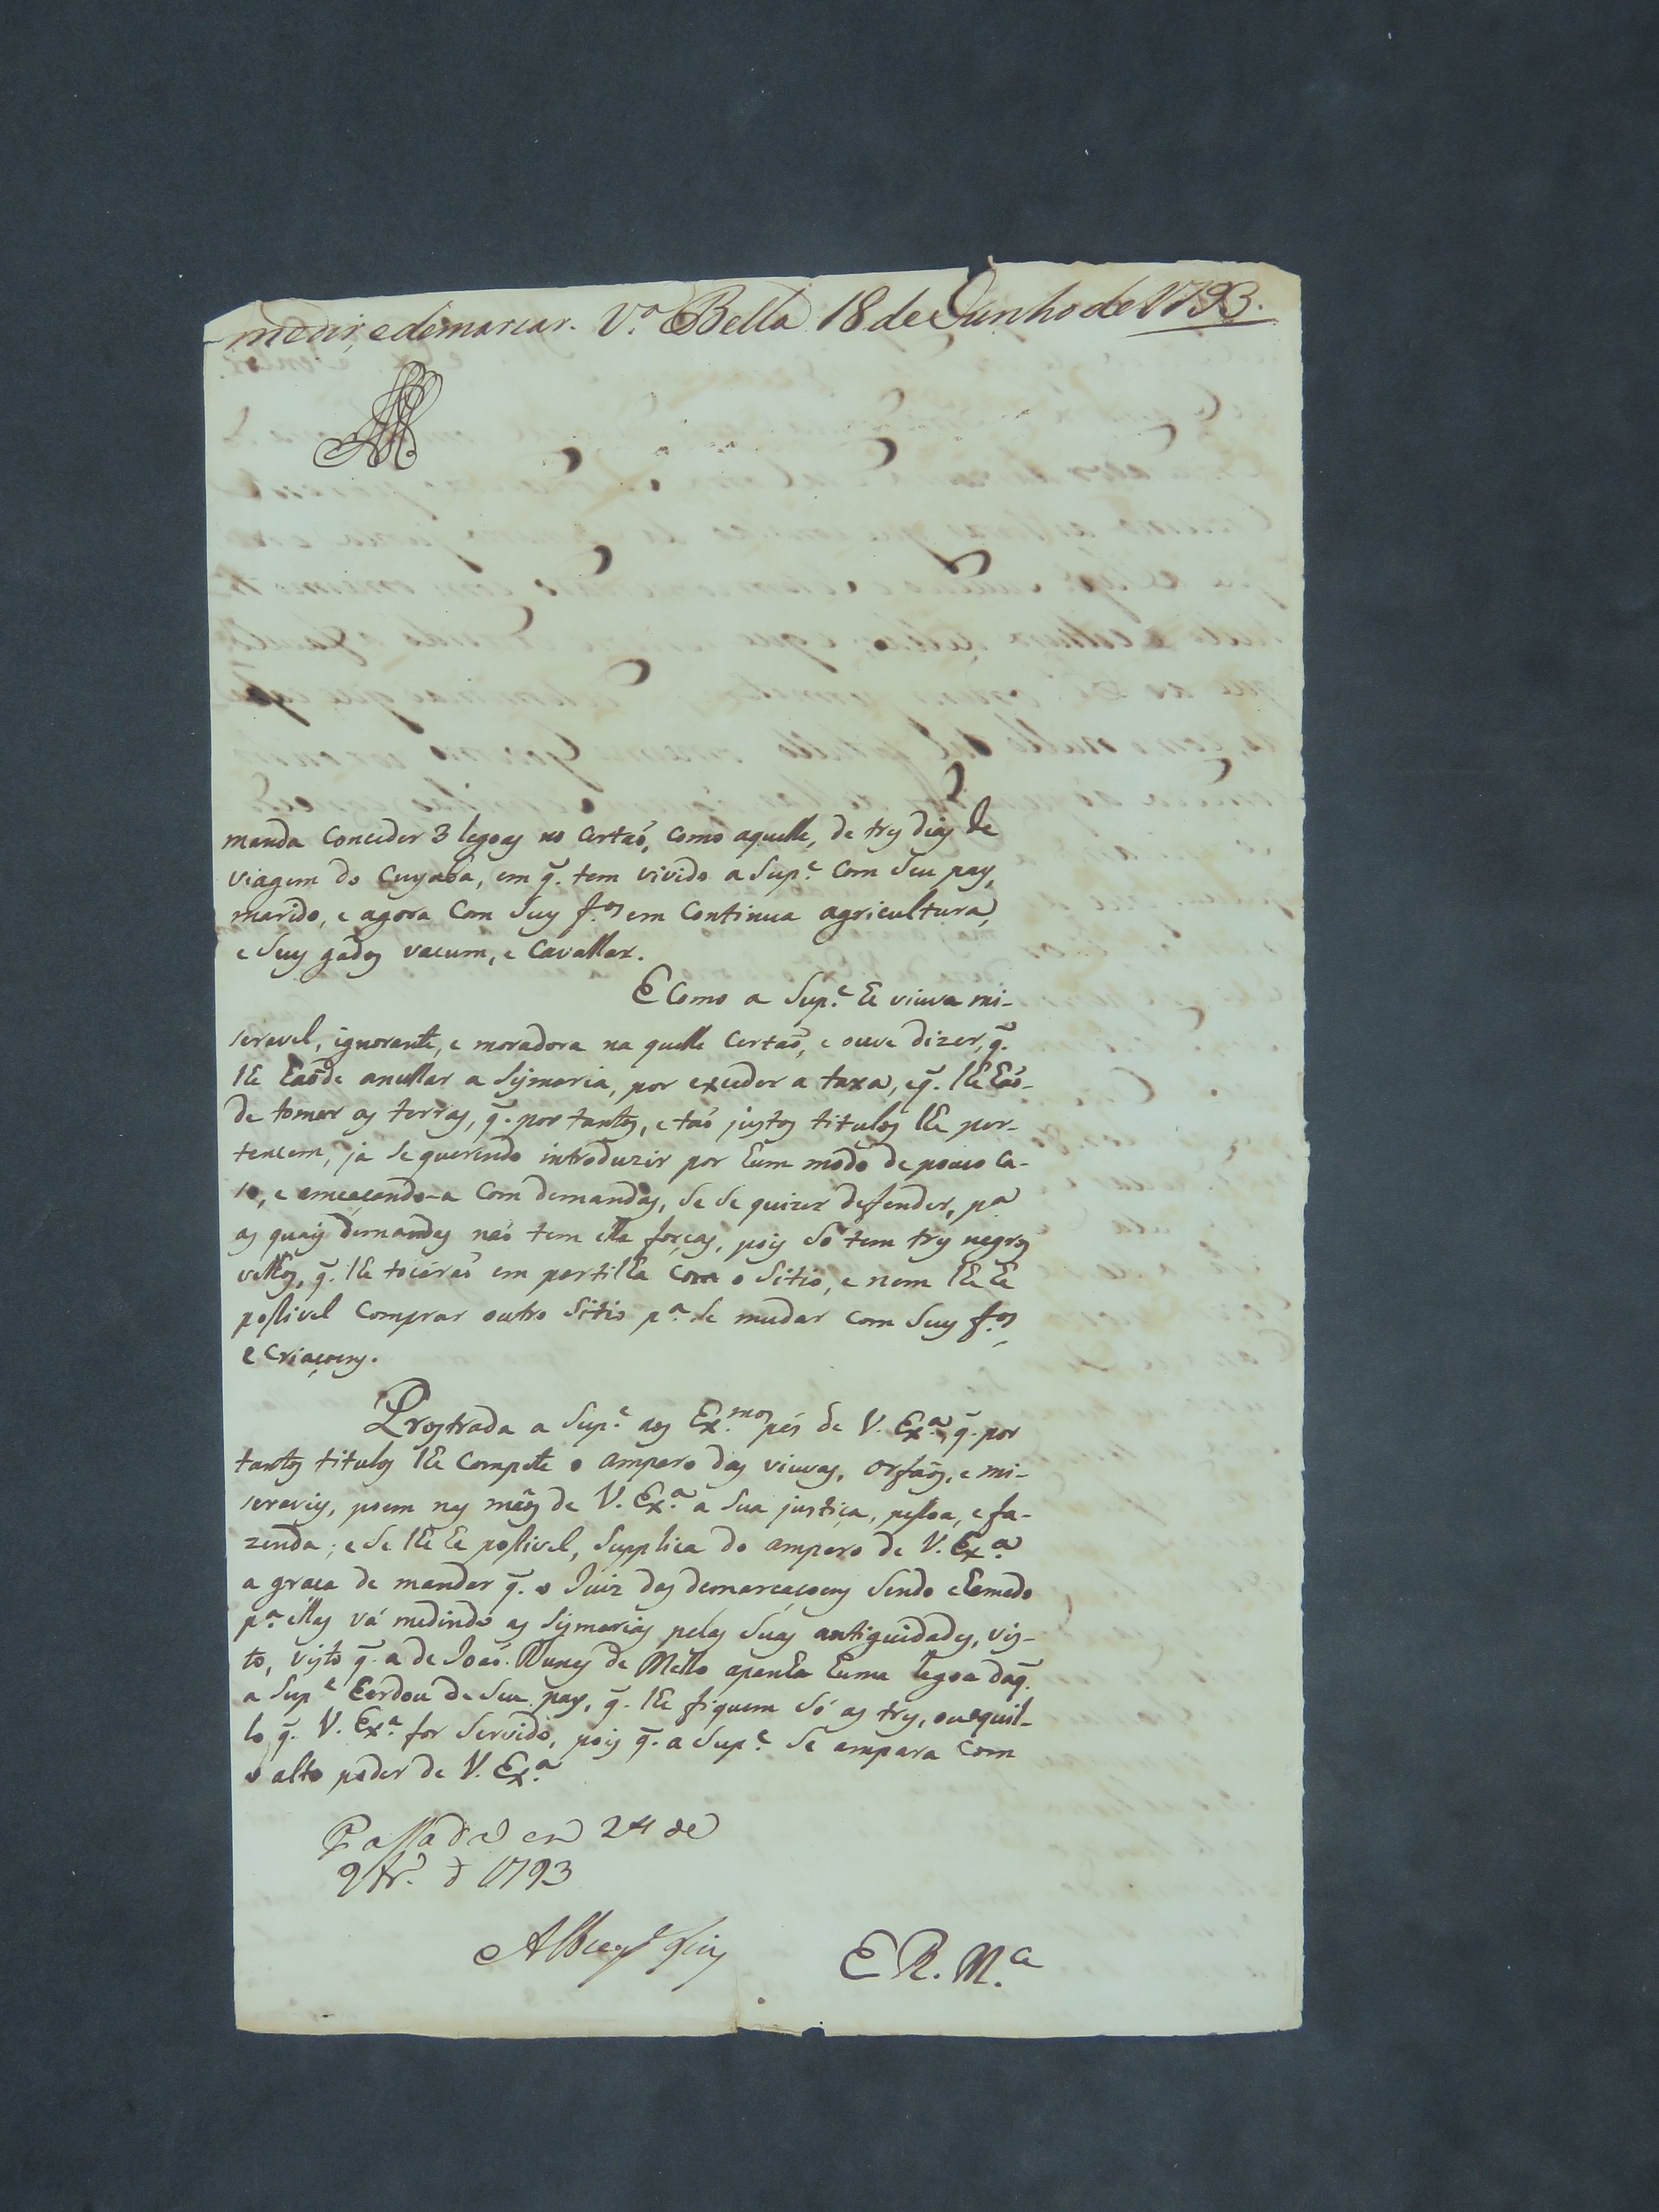 medir, e demarcar. V.ª Bella 18 de Junho de 1793.
manda conceder 3 legoas no certaõ, como aquelle, de trez dias de
viagem do Cuyabá, em q̃. tem vivido a Sup.e com seu pay,
marido, e agora com suas f.os em continua agricultura,
e seus gados vacum, e cavallar.
E como a Sup.e he viuva mi-
seravel, ignorante, e moradora na quelle certaõ, e ouve dizer, q̃.
lhe haõde anullar a sismaria, por exceder a taxa, e q̃. lhe haõ-
de tomar as terras, q̃. por tantos, e taõ justos titulos lhe per-
tencem, já se querendo introduzir por hum modo de pouco ca-
so, e ameaçando-a com demandas, se se quizer defender, p.ª
as quais demandas naõ tem ella forças, pois só tem tres negros
velhos, q̃. lhe tocáraõ em partilha com o sitio, e nem lhe he
possivel comprar outro sitio p.ª se mudar com seus f.os
e criaçoens.
Prostrada a Sup.e aos Ex.mos pés de V. Ex.ª, q̃. por
tantos titulos lhe compete o amparo das viuvas, orfaõs, e mi-
seraveis, poem nas maõs de V. Ex.ª a sua justiça, pessoa, e fa-
zenda; e se lhe he possivel, supplica do amparo de V. Ex.ª
a graça de mandar q̃. o Juiz das demarcaçoens sendo chamado
p.ª ellas vá medindo as sismarias pelas suas antiguidades, vis-
to, visto q̃. a de Joaõ Nunes de Mello apanha huma legoa da q̃.
a Sup.e herdou de seu pay, q̃. lhe fiquem só as tres, ou aquil-
lo q̃. V. Ex.ª for servido, pois q̃. a Sup.e se ampara com
o alto poder de V. Ex.ª
Passada em 24 de
9br.º d 1793
E R. M.ce